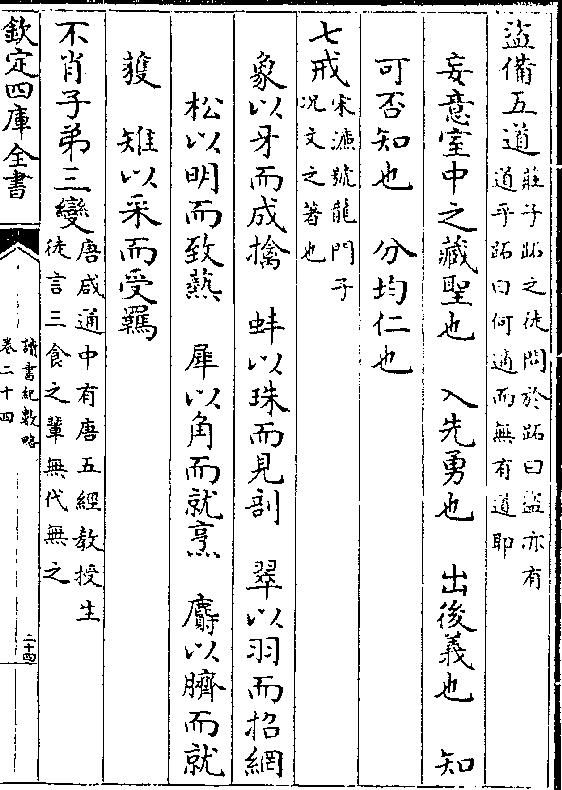 盜備五道 莊子跖之徒問於跖曰盜亦有
道乎跖曰何適而無有道耶
妄意室中之藏聖也 入先勇也 出後義也 知
可否知也 分均仁也
七戒 宋濂號龍門子
況文之著也
象以牙而成擒 蚌以珠而見剖 翠以羽而招網
松以明而致爇 犀以角而就烹 麝以臍而就
獲 雉以采而受羈
不肖子弟三變 唐咸通中有唐五經教授生
徒言三食之輩無代無之
欽定四庫全書
讀書紀數略
卷二十四
二十四